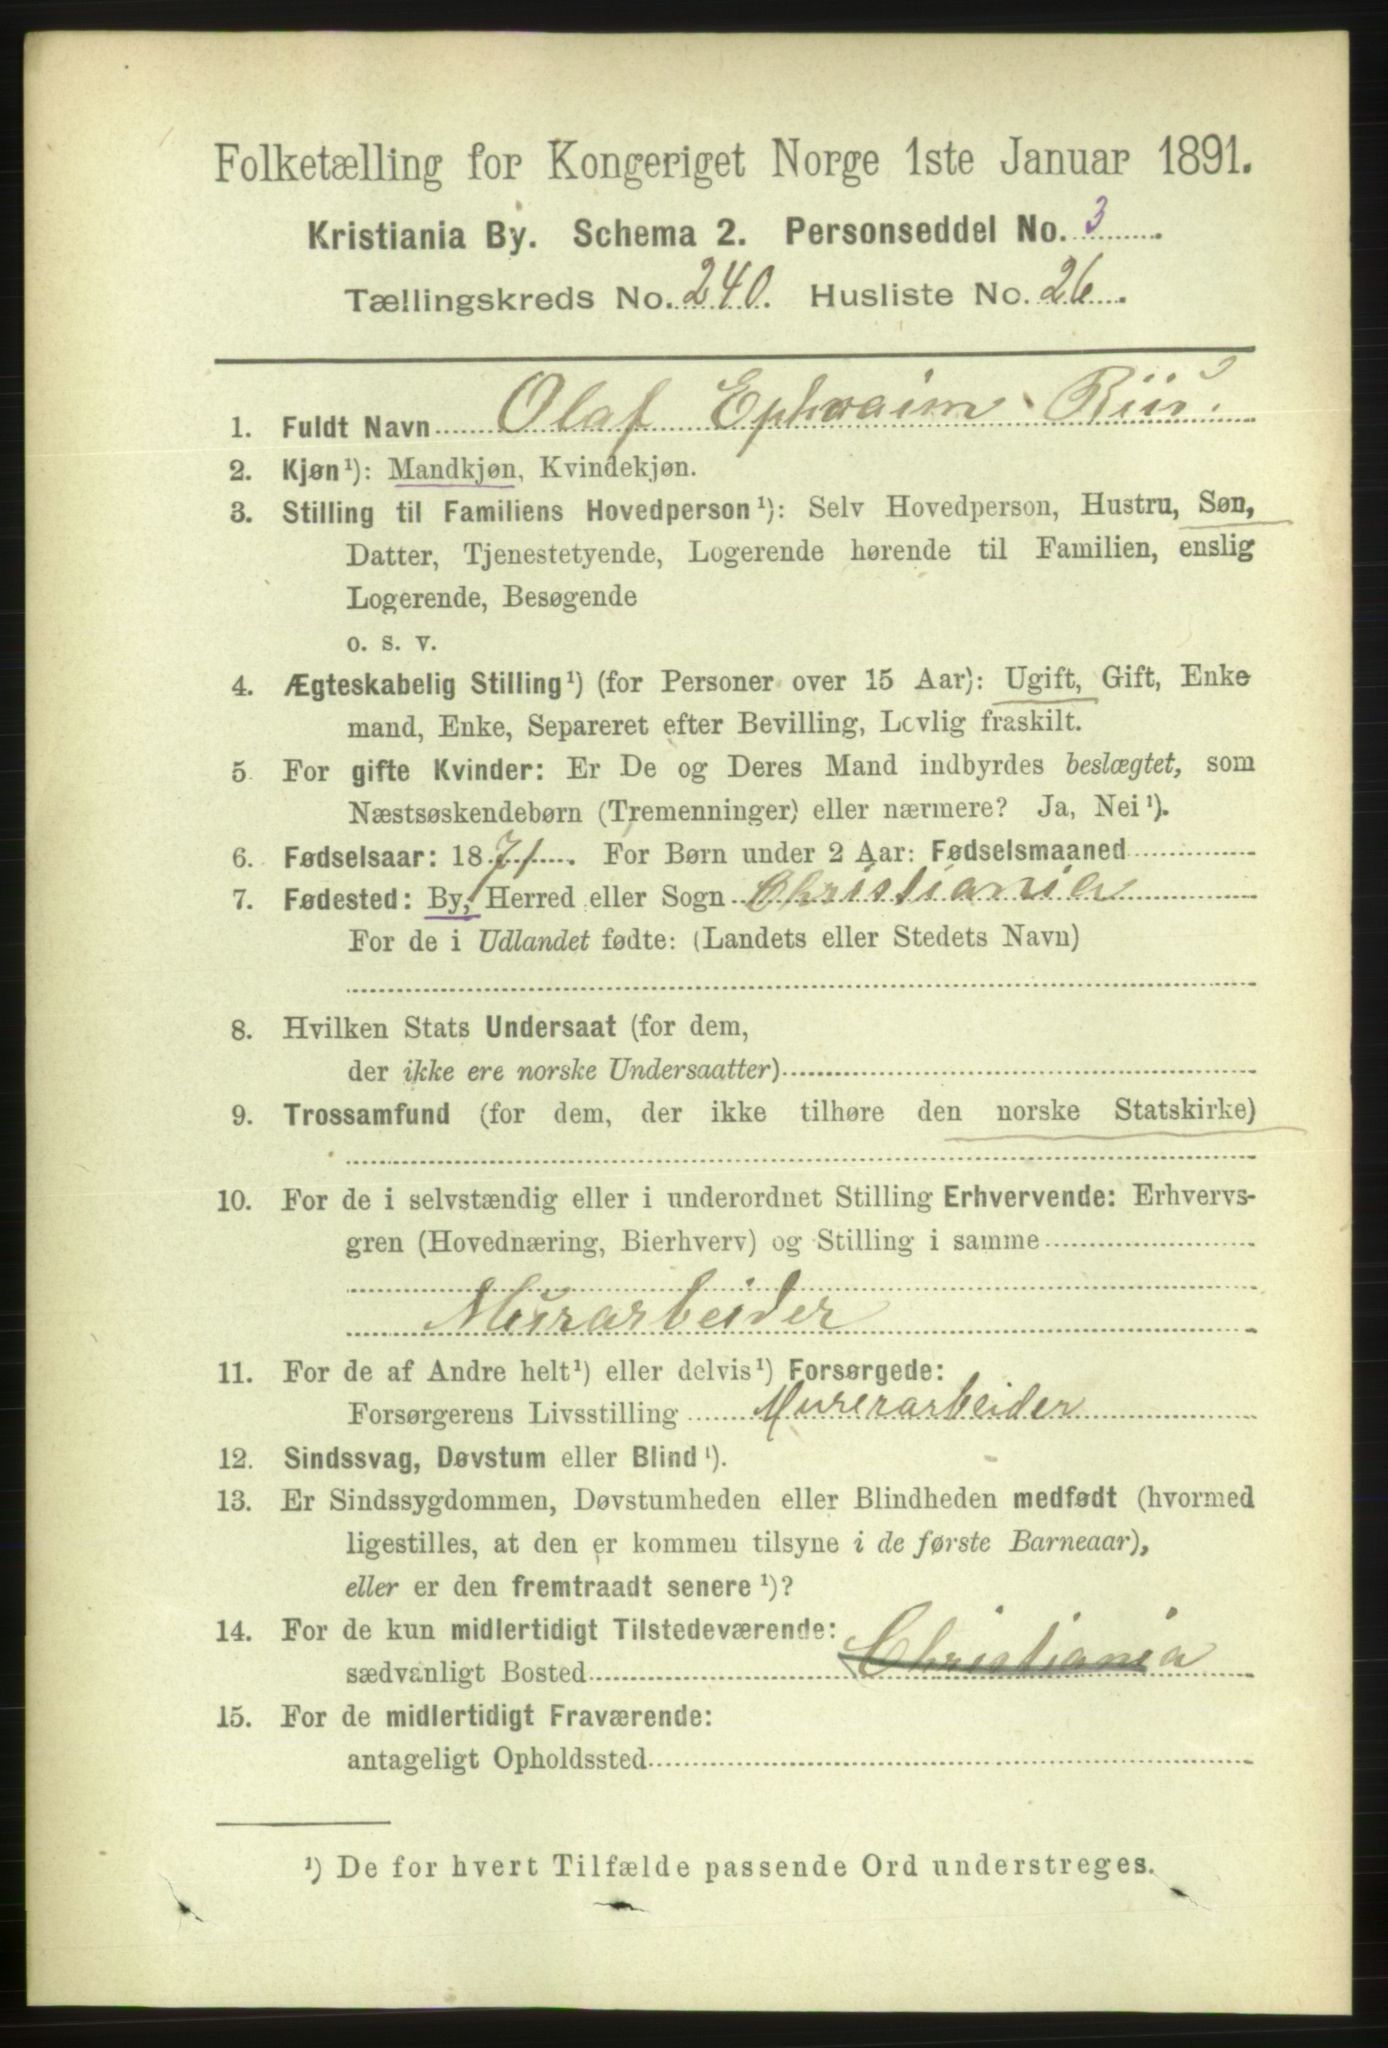 Folketælling for Kongeriget Norge 1ste Januar 1891.
Kristiania By. Schema 2. Personseddel No. 3
Tællingskreds No. 240. Husliste No. 26.
1. Fuldt Navn Olaf Ephraim Riis.
2. Kjøn¹): Mandkjøn, Kvindekjøn.
3. Stilling til Familiens Hovedperson¹): Selv Hovedperson, Hustru, Søn,
Datter, Tjenestetyende, Logerende hørende til Familien, enslig
Logerende, Besøgende
o. s. v.
4. Ægteskabelig Stilling¹) (for Personer over 15 Aar): Ugift, Gift, Enke
mand, Enke, Separeret efter Bevilling, Lovlig fraskilt.
5 For gifte Kvinder: Er De og Deres Mand indbyrdes beslægtet, som
Næstsøskendebørn (Tremenninger) eller nærmere? Ja, Nei¹).
6. Fødselsaar: 1871. For Børn under 2 Aar: Fødselsmaaned
7. Fødested: By, Herred eller Sogn Christiania
For de i Udlandet fødte: (Landets eller Stedets Navn)
8. Hvilken Stats Undersaat (for dem,
der ikke ere norske Undersaatter)
9. Trossamfund (for dem, der ikke tilhøre den norske Statskirke)
10. For de i selvstændig eller i underordnet Stilling Erhvervende: Erhvervs-
gren (Hovednæring, Bierhverv) og Stilling i samme
Murarbeider
11. For de af Andre helt¹) eller delvis¹) Forsørgede:
Forsørgerens Livsstilling Murerarbeider
12. Sindssvag, Døvstum eller Blind¹).
13. Er Sindssygdommen, Døvstumheden eller Blindheden medfødt (hvormed
ligestilles, at den er kommen tilsyne i de første Barneaar),
eller er den fremtraadt senere¹)?
14. For de kun midlertidigt Tilstedeværende:
sædvanligt Bosted Christiania
15. For de midlertidigt Fraværende:
antageligt Opholdssted
¹) De for hvert Tilfælde passende Ord understreges.